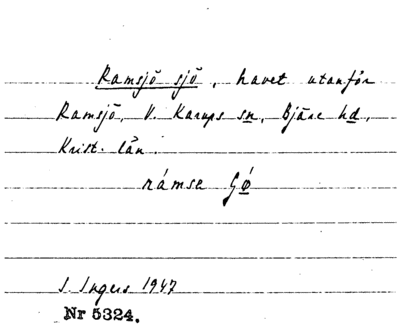 Ramsjö sjö, havet utanför
Ramsjö, V. Karups sn, Bjäre hd,
Krist. län.
rámse
I. Ingers 1947
Nr 5324.